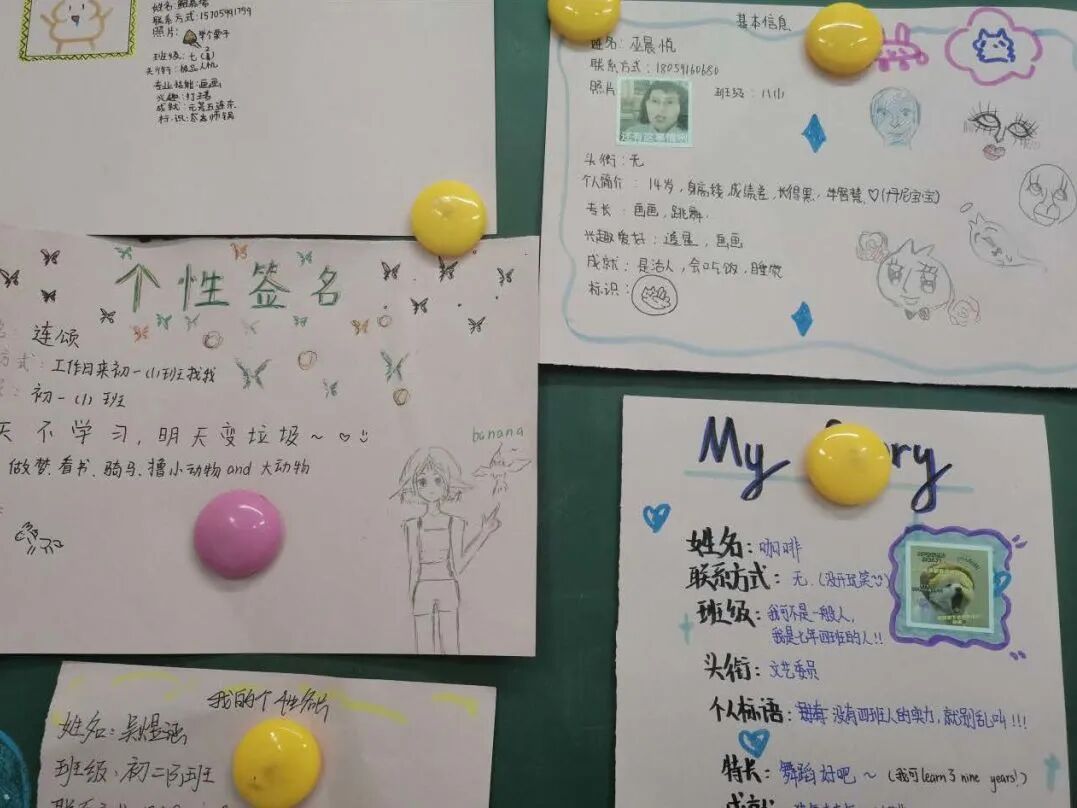 联系方式:15705991799
照片:
班级:七
专业技能:画画
兴趣:打王者
基本信息
姓名:巫晨悦
联系方式:18059160680
照片
班级:
还有这事情啊
头衔:无
个人简介:14岁,身高矮,成绩差,长得黑,牛智慧♡(丹尼宝宝)
专长:画画,跳舞.
兴趣爱好:追星,画画
成就:是活人,会吃饭,睡觉
标识:
个性签名
连颂
方式:工作日来初一(1)班找我
初一(1)班
天不学习,明天变垃圾~♡
做梦、看书、骑马、撸小动物and大动物
banana
My ry
姓名:咖啡
联系方式:无.(没开玩笑)
班级:我可不是一般人,
我是七年四班的人!!
头衔:文艺委员
个人标语:没有四班人的实力,就别乱叫!!!
特长:舞蹈好吧~(我可learn了nine years!)
我的个性名片
姓名:吴煜涵
班级:初二 班